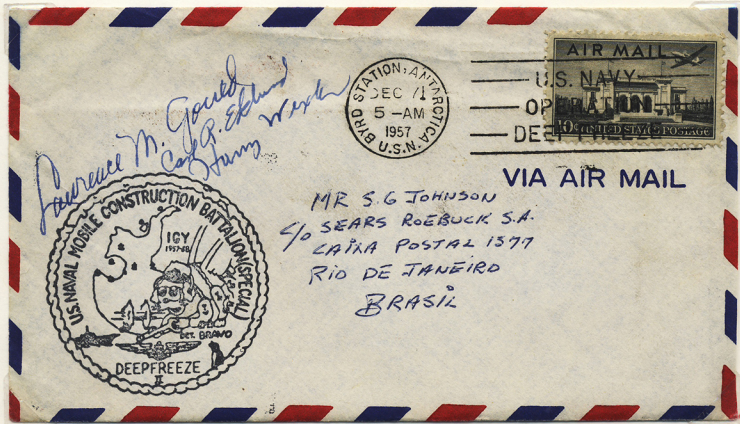 Laurence M. Gould
Carl R. Eklund
Harry Wexler
BYRD STATION, ANTARCTICA.
DEC 71
5-AM
1957
U.S.N.
AIR MAIL
U.S. NAVY
OPERATION
DEEP FREEZE
10¢ UNITED STATES POSTAGE
VIA AIR MAIL
MR S.G JOHNSON
c/o SEARS ROEBUCK S.A.
CAIXA POSTAL 1577
RIO DE JANEIRO
BRASIL
U.S. NAVAL MOBILE CONSTRUCTION BATTALION (SPECIAL)
IGY
1957-58
DET. BRAVO
DEEPFREEZE
II